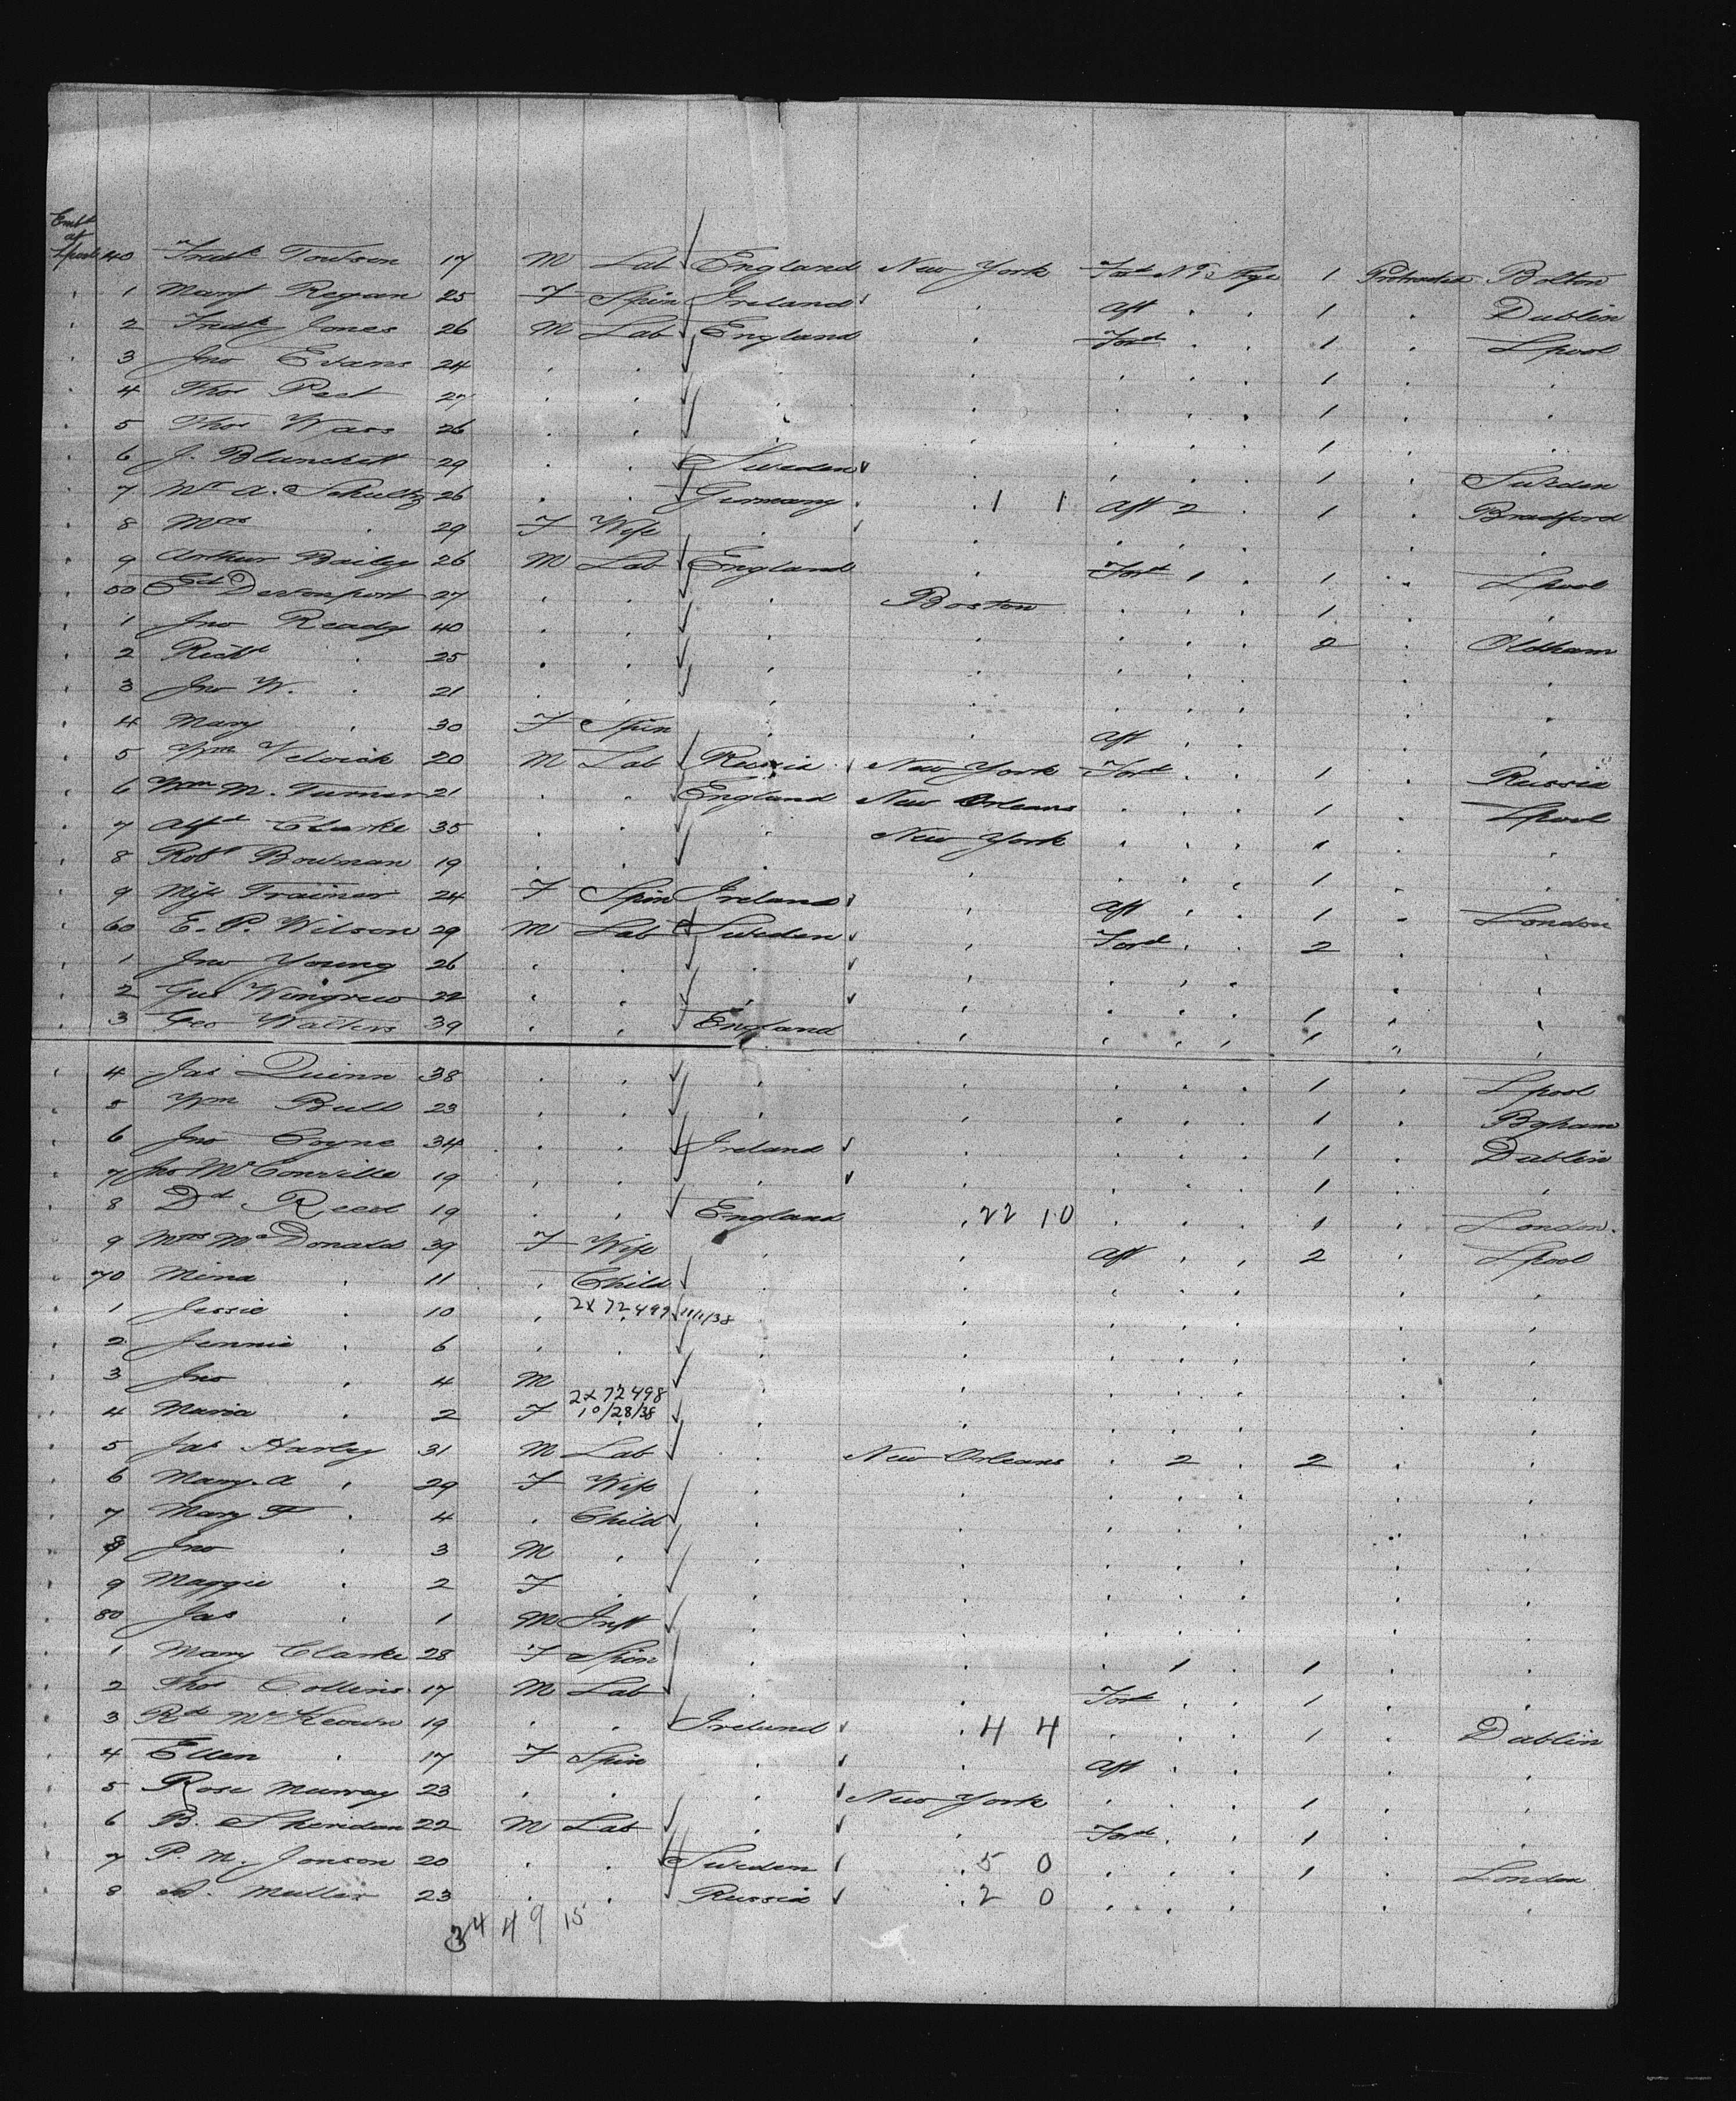 Emb^d
at
Lpool 40 Fred^k Towson 17 M Lab England New York For^d N^o 1 1 Protracted Bolton
1 Mary Regan 25 F Spin Ireland . Aft . . 1 . Dublin
2 Fred^k Jones 26 M Lab England . For^d . . 1 . Lpool
3 Jno Evans 24 . . . . . . . 1 . .
4 Thos Pest 27 . . . . . . . 1 . .
5 Thos Wass 26 . . . . . . . 1 . .
6 J. Blanchett 29 . . Sweden . . . . 1 . Sweden
7 Mr A. Schultz 26 . . Germany . 1 1 Aft 2 . 1 . Bradford
8 Mrs . 29 F Wife . . . . . . . .
9 Arthur Bailey 26 M Lab England . For^d 1 . 1 . Lpool
50 Ed Devonport 27 . . . Boston . . . 1 . .
1 Jno Ready 40 . . . . . . . 2 . Oldham
2 Rich^d . 25 . . . . . . . . . .
3 Jno W. . 21 . . . . . . . . . .
4 Mary . 30 F Spin . . Aft . . . . .
5 Wm Velvick 20 M Lab Russia New York For^d . . 1 . Russia
6 Wm M. Turner 21 . . England New Orleans . . . 1 . Lpool
7 Alf^d Clarke 35 . . . New York . . . 1 . .
8 Rob^t Bowman 19 . . . . . . . 1 . .
9 Miss Trainer 24 F Spin Ireland . Aft . . 1 . London
60 E. P. Wilson 29 M Lab Sweden . For^d . . 2 . .
1 Jno Young 26 . . . . . . . . . .
2 Gus Wingren 22 . . . . . . . 1 . .
3 Geo Walters 39 . . England . . . . 1 . .
4 Jas Quinn 38 . . . . . . . 1 . Lpool
5 Wm Bull 23 . . . . . . . 1 . Bgham
6 Jno Coyne 34 . . Ireland . . . . 1 . Dublin
7 Jno McConville 19 . . . . . . . 1 . .
8 D^d Reed 19 . . England . 22 10 . . . 1 . London.
9 Mrs McDonald 39 F Wife . . Aft . . 2 . Lpool
70 Mina . 11 . Child . . . . . . . .
1 Jessie . 10 . 2X 72499 11/1/38 . . . . . . .
2 Jennie . 6 . . . . . . . . . .
3 Jno . 4 M . . . . . . . . .
2X 72498
4 Maria . 2 F 10/28/38 . . . . . . . .
5 Jas Harley 31 M Lab . New Orleans . 2 . 2 . .
6 Mary A . 29 F Wife . . . . . . . .
7 Mary F . 4 . Child . . . . . . . .
8 Jno . 3 M . . . . . . . . .
9 Maggie . 2 F . . . . . . . . .
80 Jas . 1 M Inft . . . . . . . .
1 Mary Clarke 28 F Spin . . . 1 . 1 . .
2 Thos Collins 17 M Lab . . For^d . . 1 . .
3 R^d McKeown 19 . . Ireland . 4 4 . . . 1 . Dublin
4 Ellen . 17 F Spin . . Aft . . . . .
5 Rose Murray 23 . . . New York . . . 1 . .
6 B. Sheridan 22 M Lab . . For^d . . 1 . .
7 P. M. Jonson 20 . . Sweden . 5 0 . . . 1 . London
8 Muller 23 . . Russia . 2 0 . . . . .
34 49 15